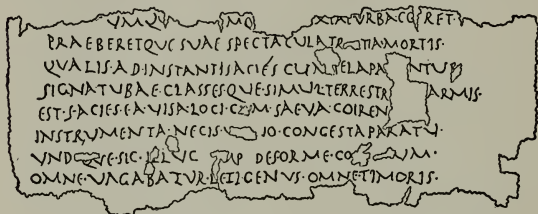 VMQV MO XIATVRBACO RET·
PRAEBERETQVE SVAE SPECTACVLA TR TIA·MORTIS·
QVALIS·AD·INSTANTIS·ACIES CVM TELA PA NTVR
SIGNA TVBAE·CLASSESQVE·SIMVL TERRESTR ARMIS·
EST·FACIES·EA VISA·LOCI·CVM·SAEVA·COIREN
INSTRVMENTA·NECIS· IO·CONGESTA PARATV·
VND VE·SIC·ILLVC DEFORME·CO VM·
OMNE·VAGABATVR·LETI·GENVS·OMNE TIMORIS·